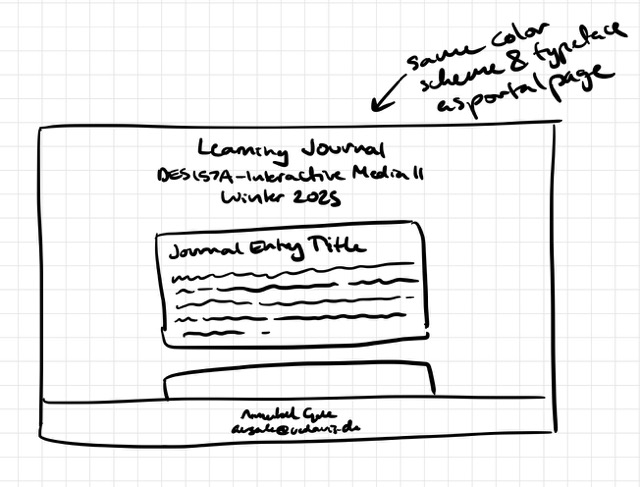 same color
scheme & typeface
as portal page
Learning Journal
DES157A-Interactive Media II
Winter 2025
Journal Entry Title